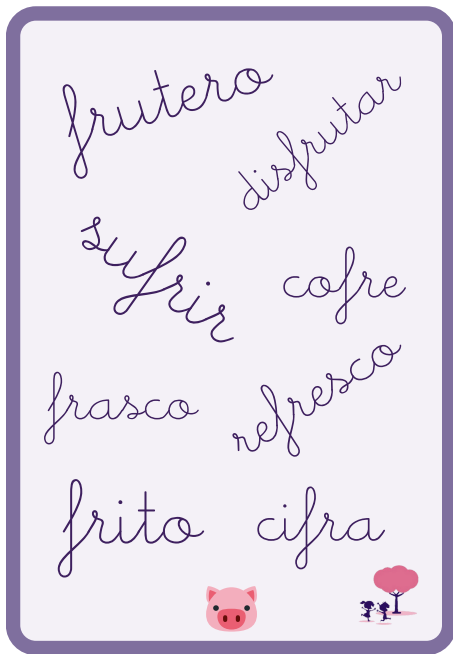 frutero
disfrutar
sufrir
cofre
frasco
refresco
frito
cifra